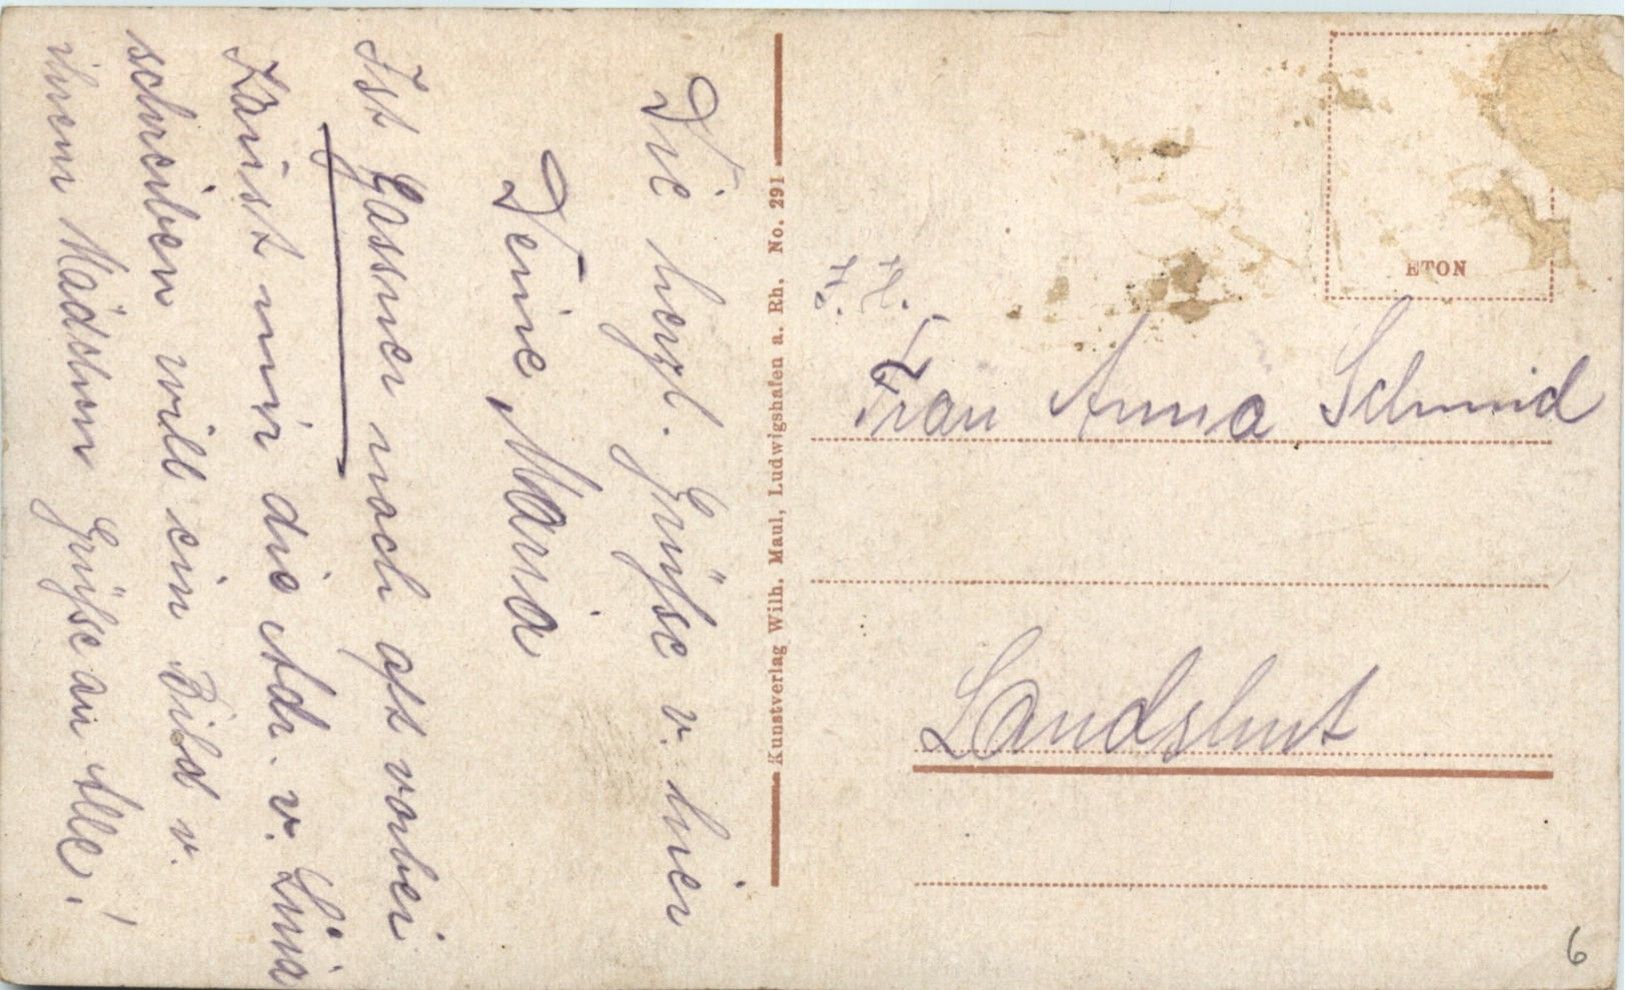 Die herzl. Grüße v. hier
Deine Maria
Ist Gassner noch oft vorbei
Kanst mir die Adr. v. Lina
schreiben will ein Bild v.
ihrem Mädchen Grüße an Alle!
Kunstverlag Wilh. Maul, Ludwigshafen a. Rh. No. 291
ETON
H. H.
Frau Anna Schmid
Landshut
6